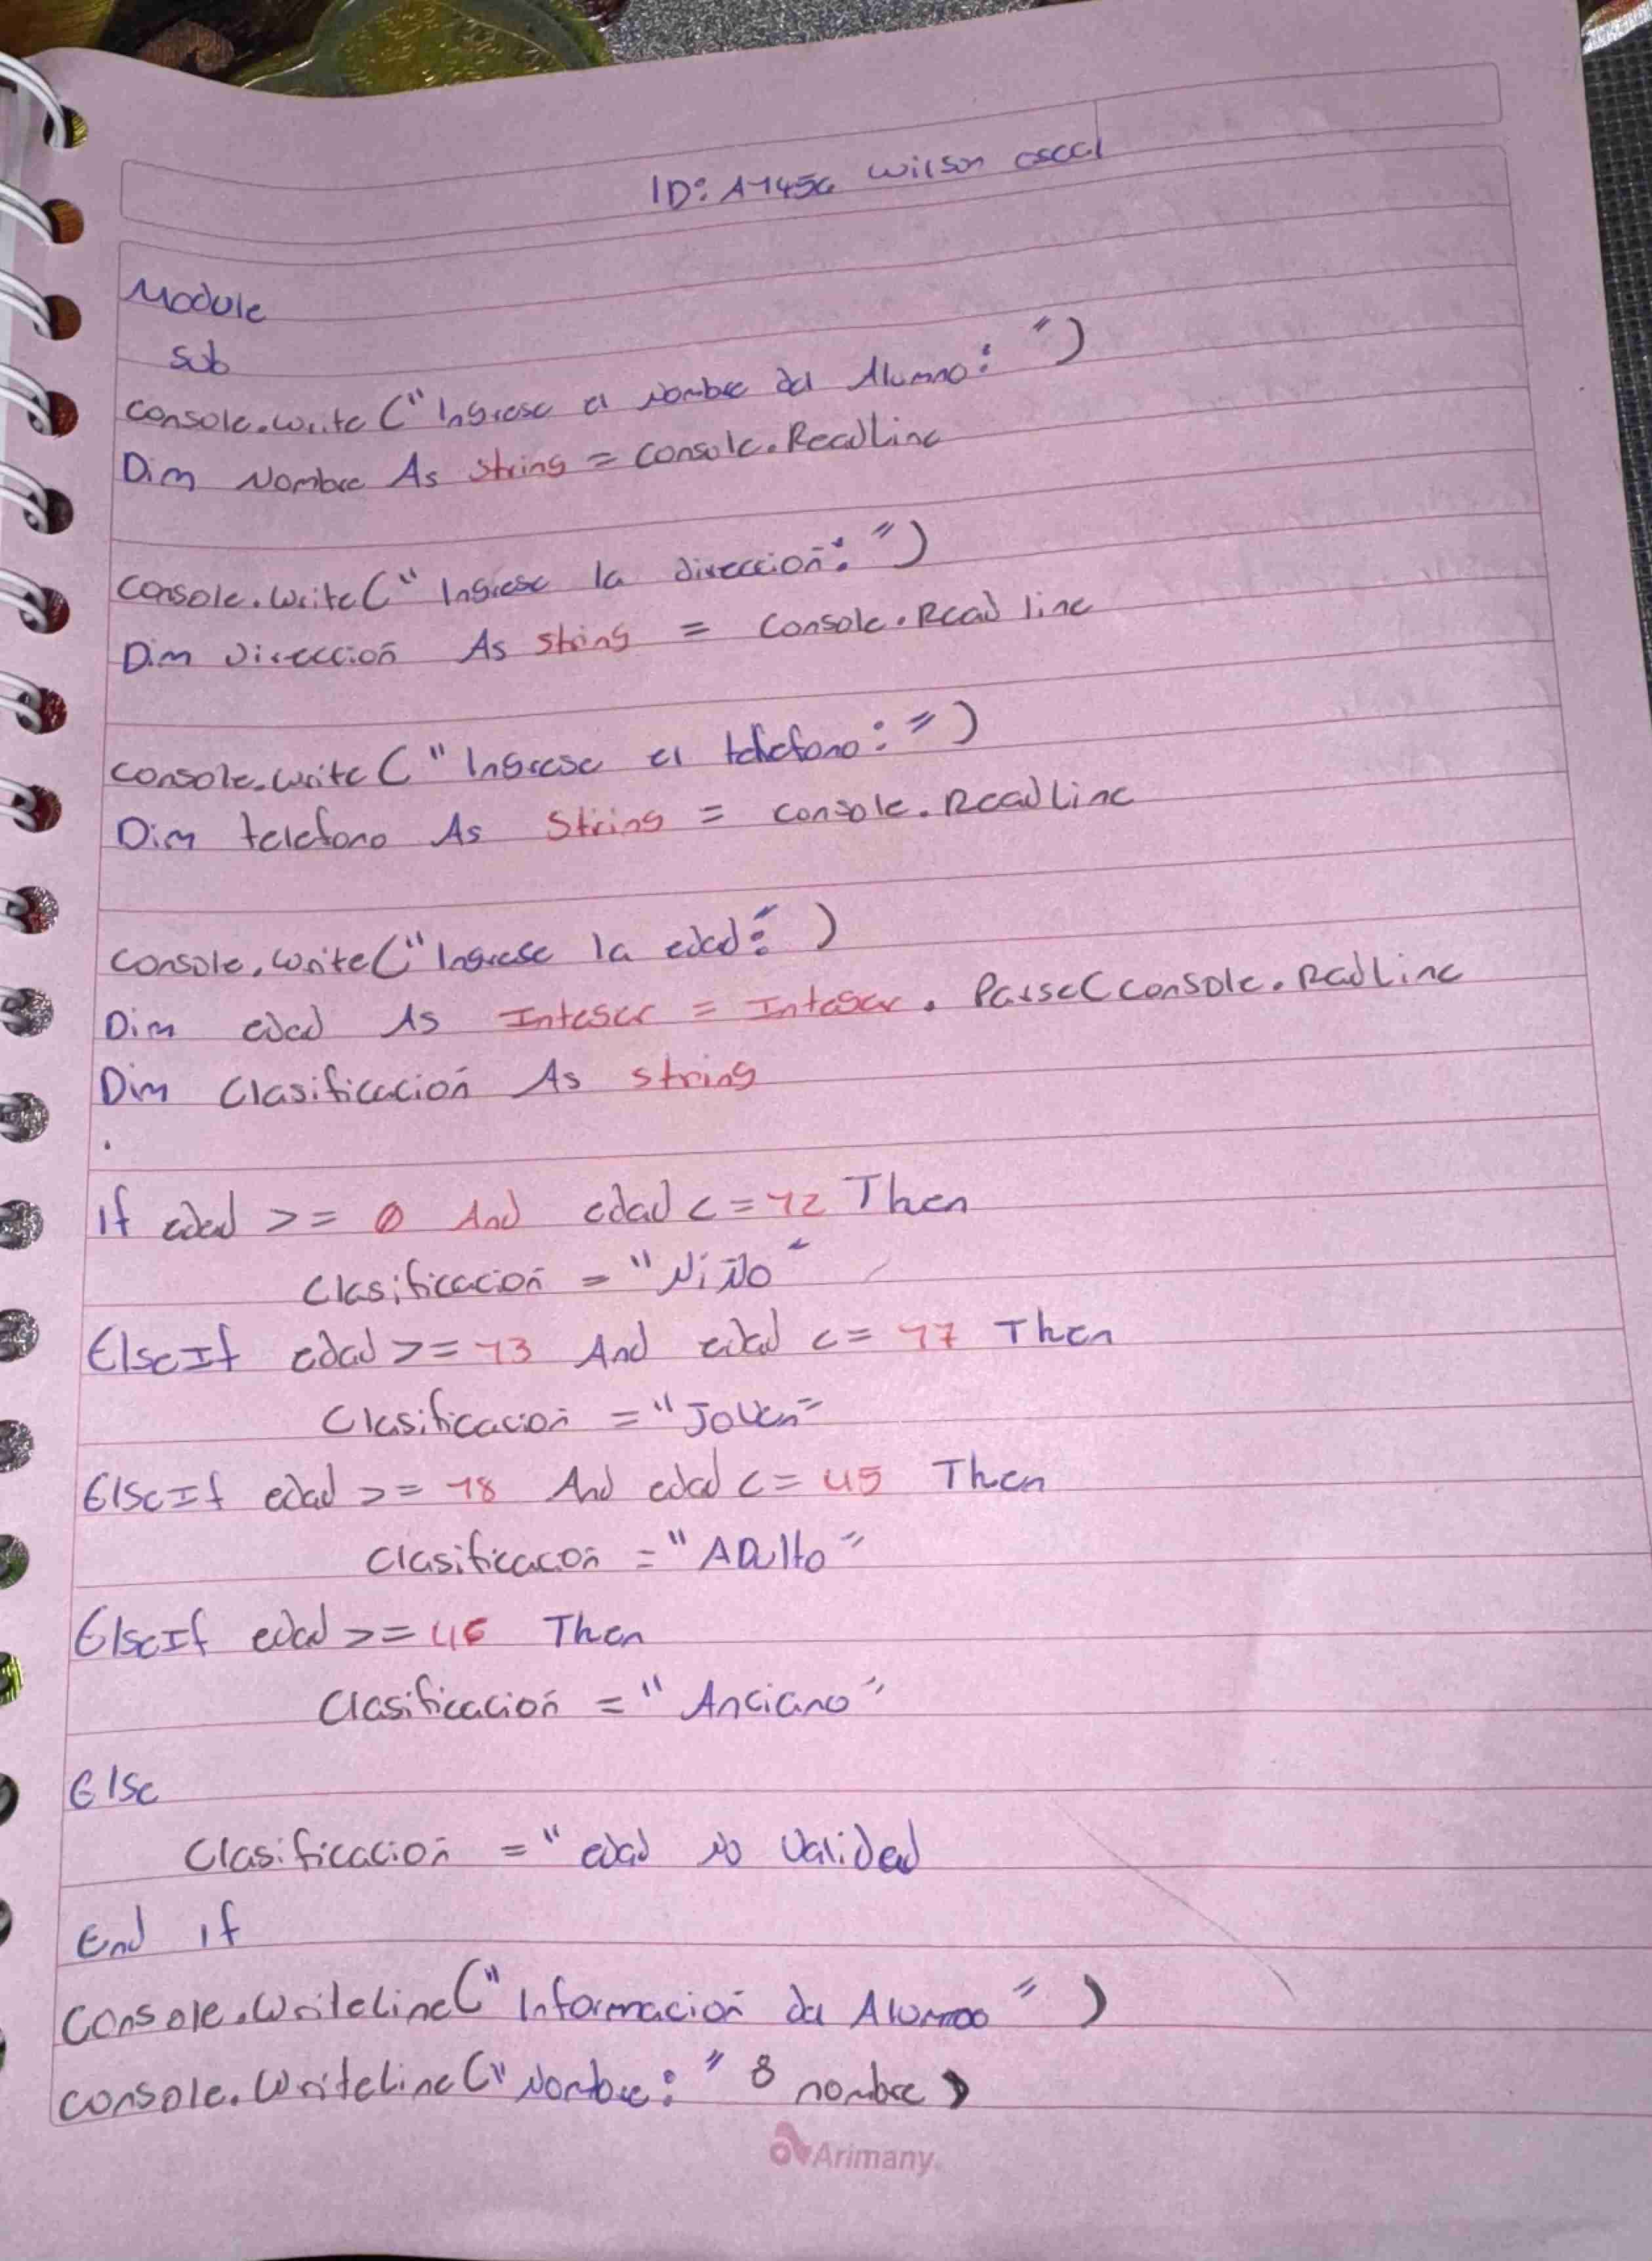 ID: A1456 Wilson oscal
Module
sub
console.write ("Ingrese el Nombre del Alumno: ")
Dim Nombre As string = console.ReadLine
console.write (" Ingrese la dirección: ")
Dim Dirección As string = Console.Read line
console.write ("Ingrese el telefono: ")
Dim telefono As String = console.ReadLine
console.write ("Ingrese la edad:" )
Dim edad As Integer = Integer . Parse(console.ReadLine
Dim Clasificación As string
.
If edad >= 0 And edad <= 12 Then
Clasificación = "Niño"
ElseIf edad >= 13 And edad <= 17 Then
Clasificación = "Joven"
ElseIf edad >= 18 And edad <= 45 Then
Clasificacón = "ADulto"
ElseIf edad >= 46 Then
Clasificación = "Anciano"
Else
Clasificación = "edad No Validad
End if
Console.WriteLine(" Información del Alumno " )
console.WriteLine(" Nombre: " & nombre )
Arimany.